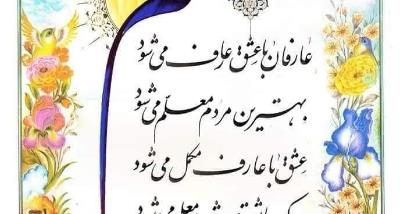 عارفان با عشق عارف می‌شود
بهترین مردم معلم می‌شود
عشق با عارف مکمل می‌شود
عشق معلم می‌شود